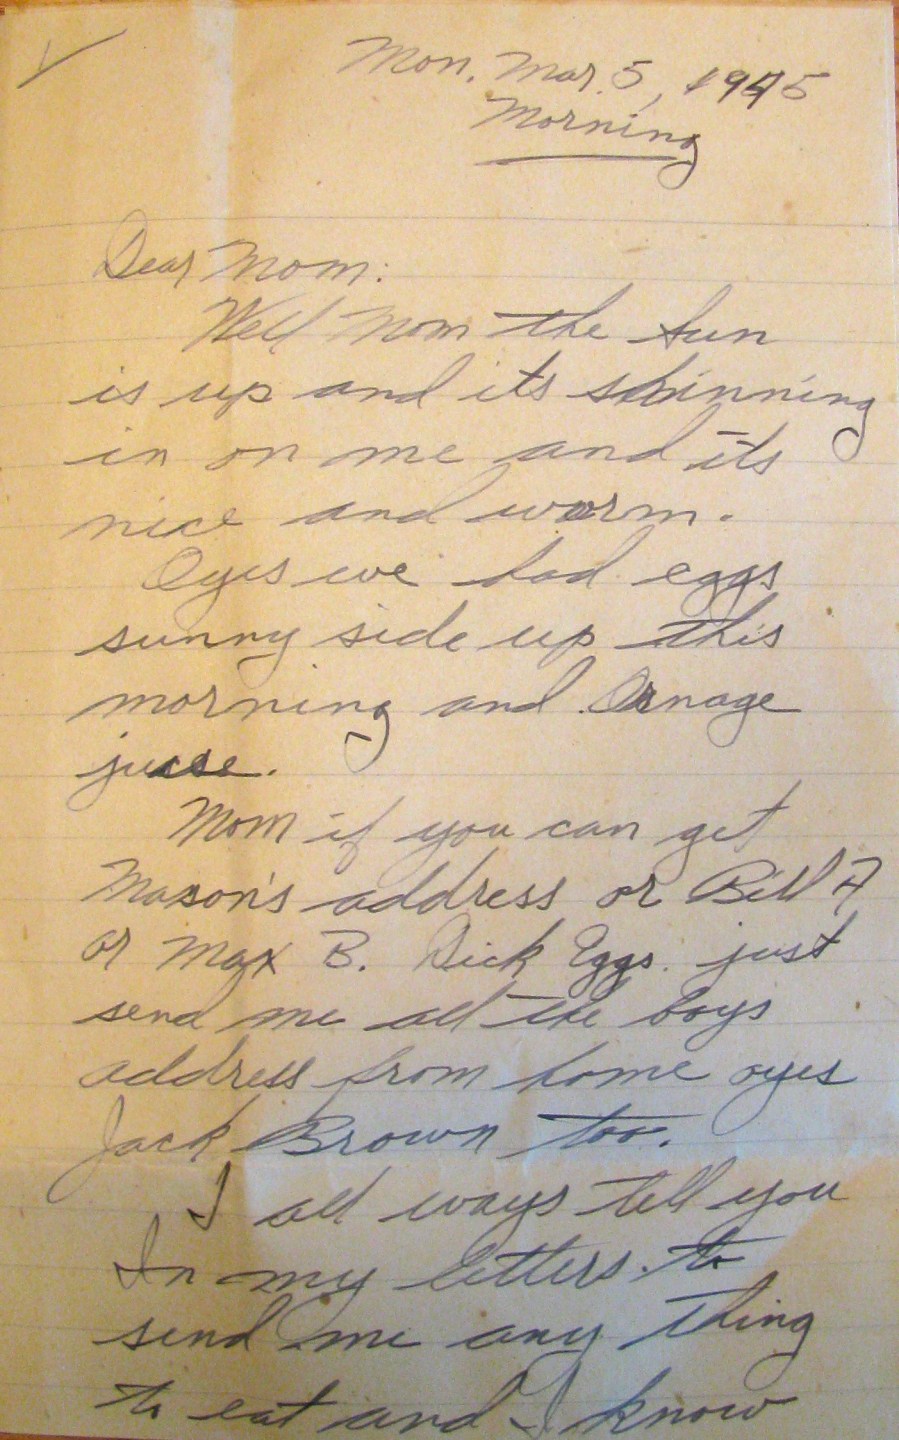 Mon. Mar. 5, 1945
Morning
Dear Mom:
Well Mom the sun
is up and its shinning
in on me and its
nice and warm.
Oyes we had eggs
sunny side up this
morning and Ornage
juise.
Mom if you can get
Mason's address or Bill A
or Max B. Dick Eggs. just
send me all the boys
address from home oyes
Jack Brown too.
I all ways tell you
In my letters to
send me any thing
to eat and I know